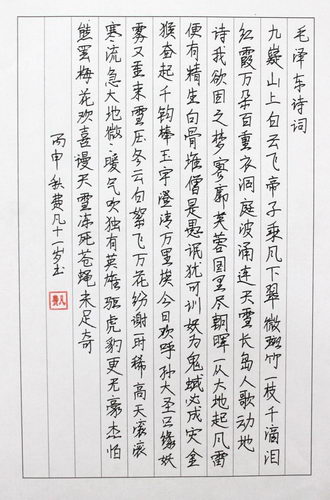 毛泽东诗词
九嶷山上白云飞帝子乘风下翠微斑竹一枝千滴泪
红霞万朵百重衣洞庭波涌连天雪长岛人歌动地
诗我欲因之梦寥廓芙蓉国里尽朝晖一从大地起风雷
便有精生白骨堆僧是愚氓犹可训妖为鬼蜮必成灾金
猴奋起千钧棒玉宇澄清万里埃今日欢呼孙大圣只缘妖
雾又重来雪压冬云白絮飞万花纷谢一时稀高天滚滚
寒流急大地微〻暖气吹独有英雄驱虎豹更无豪杰怕
熊罴梅花欢喜漫天雪冻死苍蝇未足奇
丙申 秋 费凡十一岁书